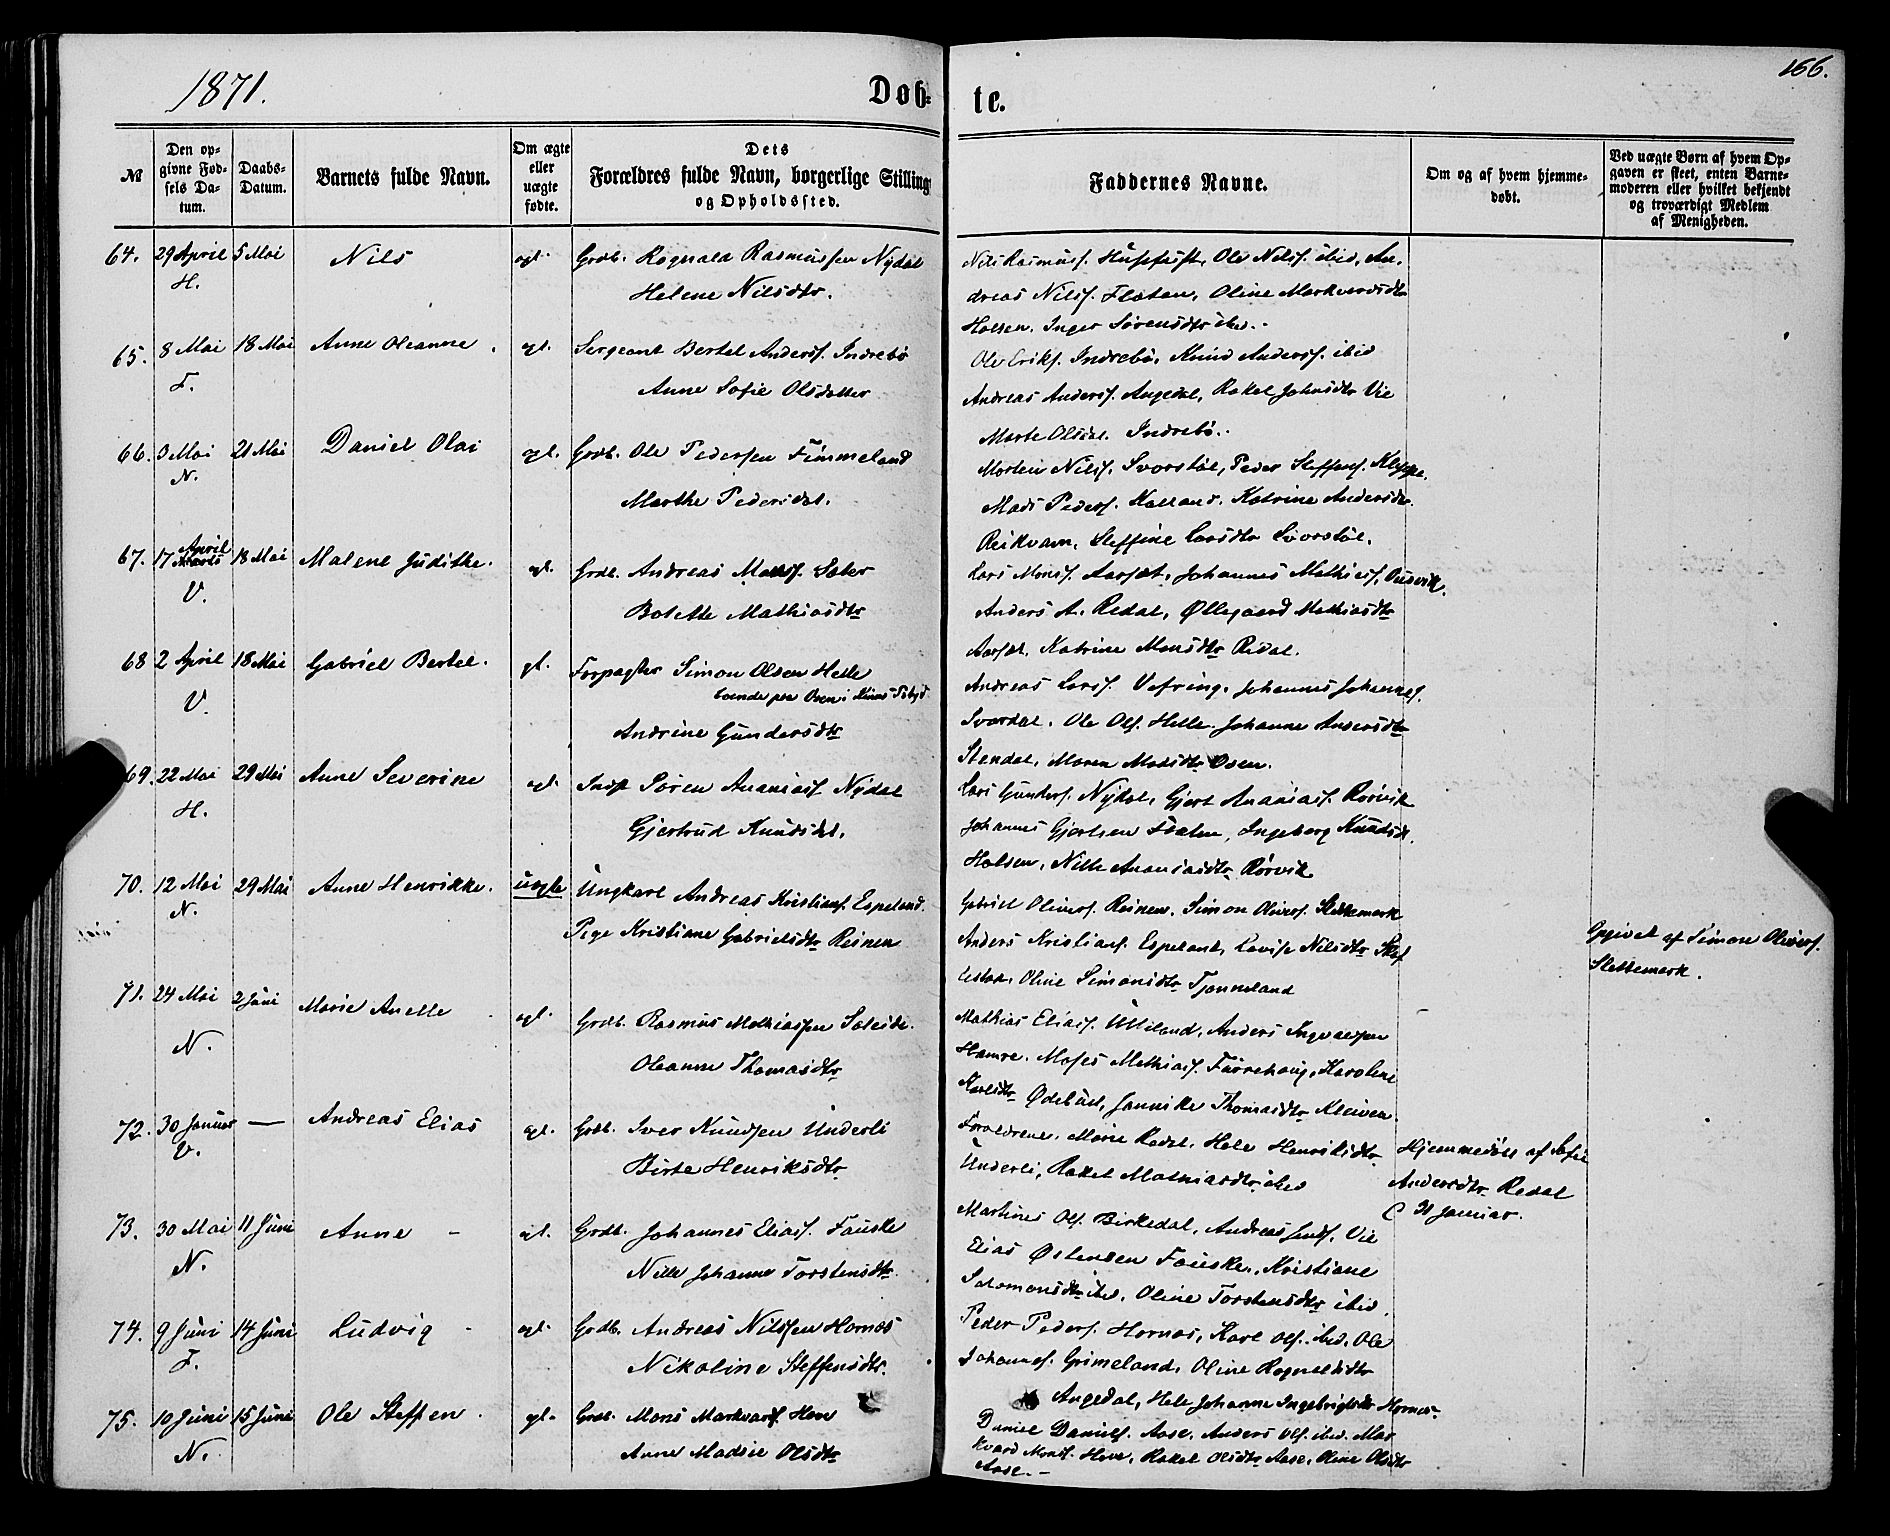 1871.
Døb-
te.
166.
№
Den op-
givne Fød-
sels Da-
tum.
Daabs-
Datum.
Barnets fulde Navn.
Om ægte
eller
uægte
fødte.
Dets
Forældres fulde Navn, borgerlige Stilling
og Opholdssted.
Faddernes Navne.
Om og af hvem hjemme-
døbt.
Ved uægte Børn af hvem Op-
gaven er skeet, enten Barne-
moderen eller hvilket bekjendt
og troværdigt Medlem
af Menigheden.
64. 29 April 5 Mai Nils ægt. Grdb. Rognald Rasmussen Nydal
H. Helene Nilsdtr.
Nils Rasmuss. Ole Nilss. ibid, An-
dreas Nilss. Flaten, Oline Markvardsdtr
Holsen, Inger Sørensdtr ibid.
65. 8 Mai 18 Mai Anne Oleanne. ægt. Sergeant Bertel Anderss. Indrebø
F. Anne Sofie Olsdatter
Ole Eriks. Indrebø, Knud Anderss. ibid
Andreas Anderss. Angedal, Rakel Johnsdtr Vie
Marte Olsdt. Indrebø.
66. 9 Mai 21 Mai Daniel Olai ægt. Grdb. Ole Pedersen Fimmeland
N. Marthe Pedersdat.
Morten Nilss. Svorstøl, Peder Steffens. Kleppe.
Mads Peders. Kalland, Katrine Andersdtr
Reikvam, Steffine Larsdtr Svorstøl.
67. 17 April 18 Mai Malene Judithe. ægt. Grdb. Andreas Mads. Sæter
V. Bolette Mathiasdtr
Lars Monss. Aarsæt, Johannes Mathiass.
Anders A. Redal, Øllegaard Mathiasdtr
Aarsæt, Katrine Monsdtr Redal.
68 2 April 18 Mai Gabriel Bertel. gt. Forpagter Simon Olsen Helle
boende paa Osen i Kinns
V. Andrine Gundersdtr
Andreas Larss. Vefring, Johannes Johanness.
Svardal, Ole Ols. Helle, Johanne Andersdtr
Stendal, Maren Madsdtr Osen.
69. 22 Mai 29 Mai Anne Severine ægt. Indst Søren Ananiass. Nydal
H. Gjertrud Knudsdat.
Lars Gunders. Nydal, Gjert Ananiass. Rørvik
Johannes Gjertsen Flaten, Ingeborg Knudsdt.
Holsen, Nille Ananiasdtr Rørvik
70. 12 Mai 29 Mai Anne Henrikke. uægte Ungkarl Andreas Kristians. Espeland.
N. Pige Kristiane Gabrielsdtr Reinen
Gabriel Olivers. Reinen, Simon Olivers. Slettemark
Anders Kristians. Espeland, Lovise Nilsdtr
Oline Simonsdtr Tjønneland
Opgivet af Simon Olivers.
Slettemark.
71. 24 Mai 2 Juni Marie Anette ægt. Grdb. Rasmus Mathiassen Soleide.
N. Oleanne Thomasdtr
Mathias Eliass. Ulleland, Anders Ingvaldsen
Hamre, Moses Mathiass. Furrehaug, Karoline
Karlsdtr Ødebust, Jannike Thomasdtr Kleiven.
72. 30 Januar — Andreas Elias ægt. Grdb. Iver Knudsen Underli
V. Birte Henriksdtr
Forældrene, Marie Redal, Hele Henriksdtr
Underli, Rakel Mathiasdtr ibid
Hjemmedøbt af Sofie
Andersdtr Redal
31 Januar.
73. 30 Mai 11 Juni Anne - ægt. Grdb. Johannes Eliass. Fauske
N. Nille Johanne Torstensdtr
Martines Ols. Birkedal, Andreas Jens. Vie
Elias Østensen Fauske, Kristiane
Salomonsdtr ibid, Oline Torstensdtr ibid.
74. 9 Juni 14 Juni Ludvig - ægt. Grdb. Andreas Nilssen Hornæs
F. Nikoline Steffensdtr.
Peder Peders. Hornæs, Karl Ols. ibid, Ole
Johanness. Grimeland, Oline Rognaldsdtr
Angedal, Hele Johanne Ingebrigtsdtr Hornæs.
75. 10 Juni 15 Juni Ole Steffen. ægt. Grdb. Mons Markvards. Hove
N. Anne Madsie Olsdtr
Daniel Daniels. Aase, Anders Ols. ibid, Mar
kvard Monss. Hove, Rakel Olsdtr Aase, Oline Olsdtr
Aase.